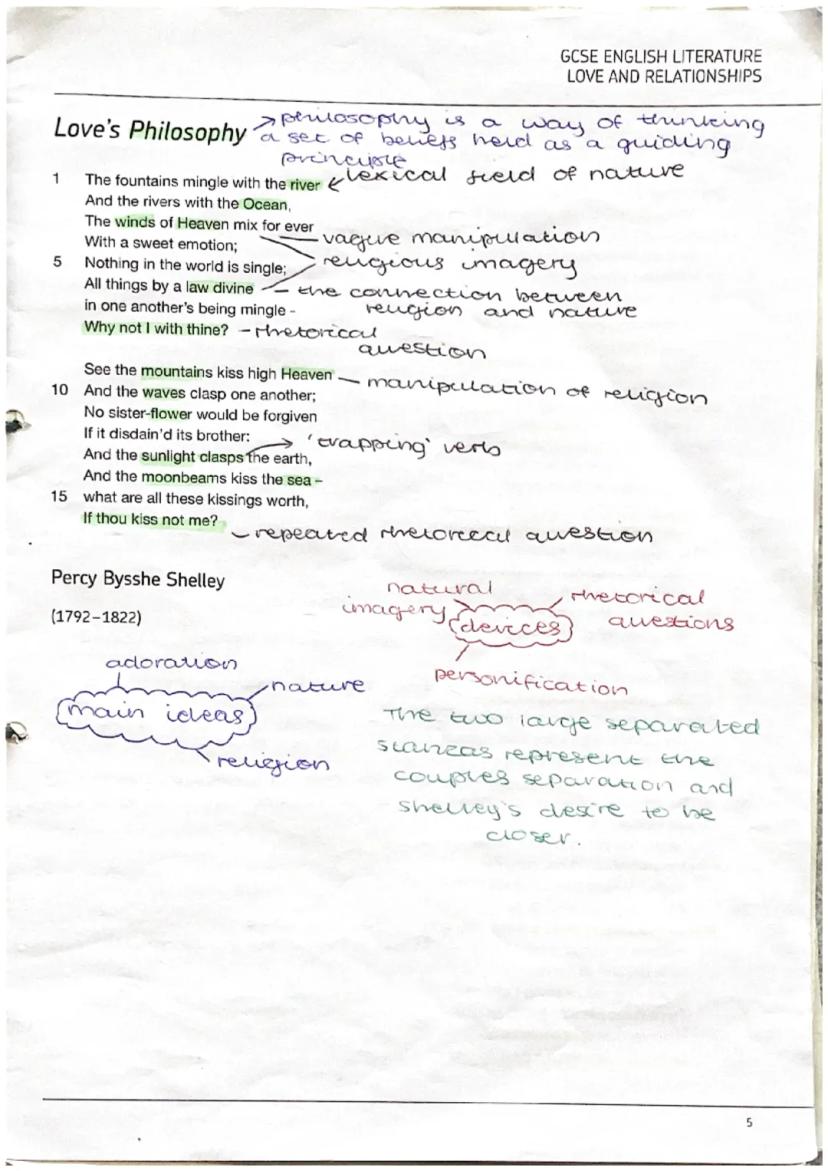 GCSE ENGLISH LITERATURE
LOVE AND RELATIONSHIPS
Love's Philosophy
philosophy is a way of thinking
a set of beliefs held as a guiding
principle
1 The fountains mingle with the river
lexical field of nature
And the rivers with the Ocean,
The winds of Heaven mix for ever
With a sweet emotion;
vague manipulation
5 Nothing in the world is single;
religious imagery
All things by a law divine
the connection between
religion and nature
in one another's being mingle -
Why not I with thine?
- rhetorical
question
See the mountains kiss high Heaven
manipulation of religion
10 And the waves clasp one another;
No sister-flower would be forgiven
If it disdain'd its brother:
'trapping' verb
And the sunlight clasps the earth,
And the moonbeams kiss the sea -
15 what are all these kissings worth,
If thou kiss not me?
repeated rhetorical question
Percy Bysshe Shelley
(1792-1822)
natural
imagery
devices
rhetorical
questions
personification
adoration
nature
main ideas
religion
The two large separated
stanzas represent the
couples separation and
shelley's desire to be
closer.
5